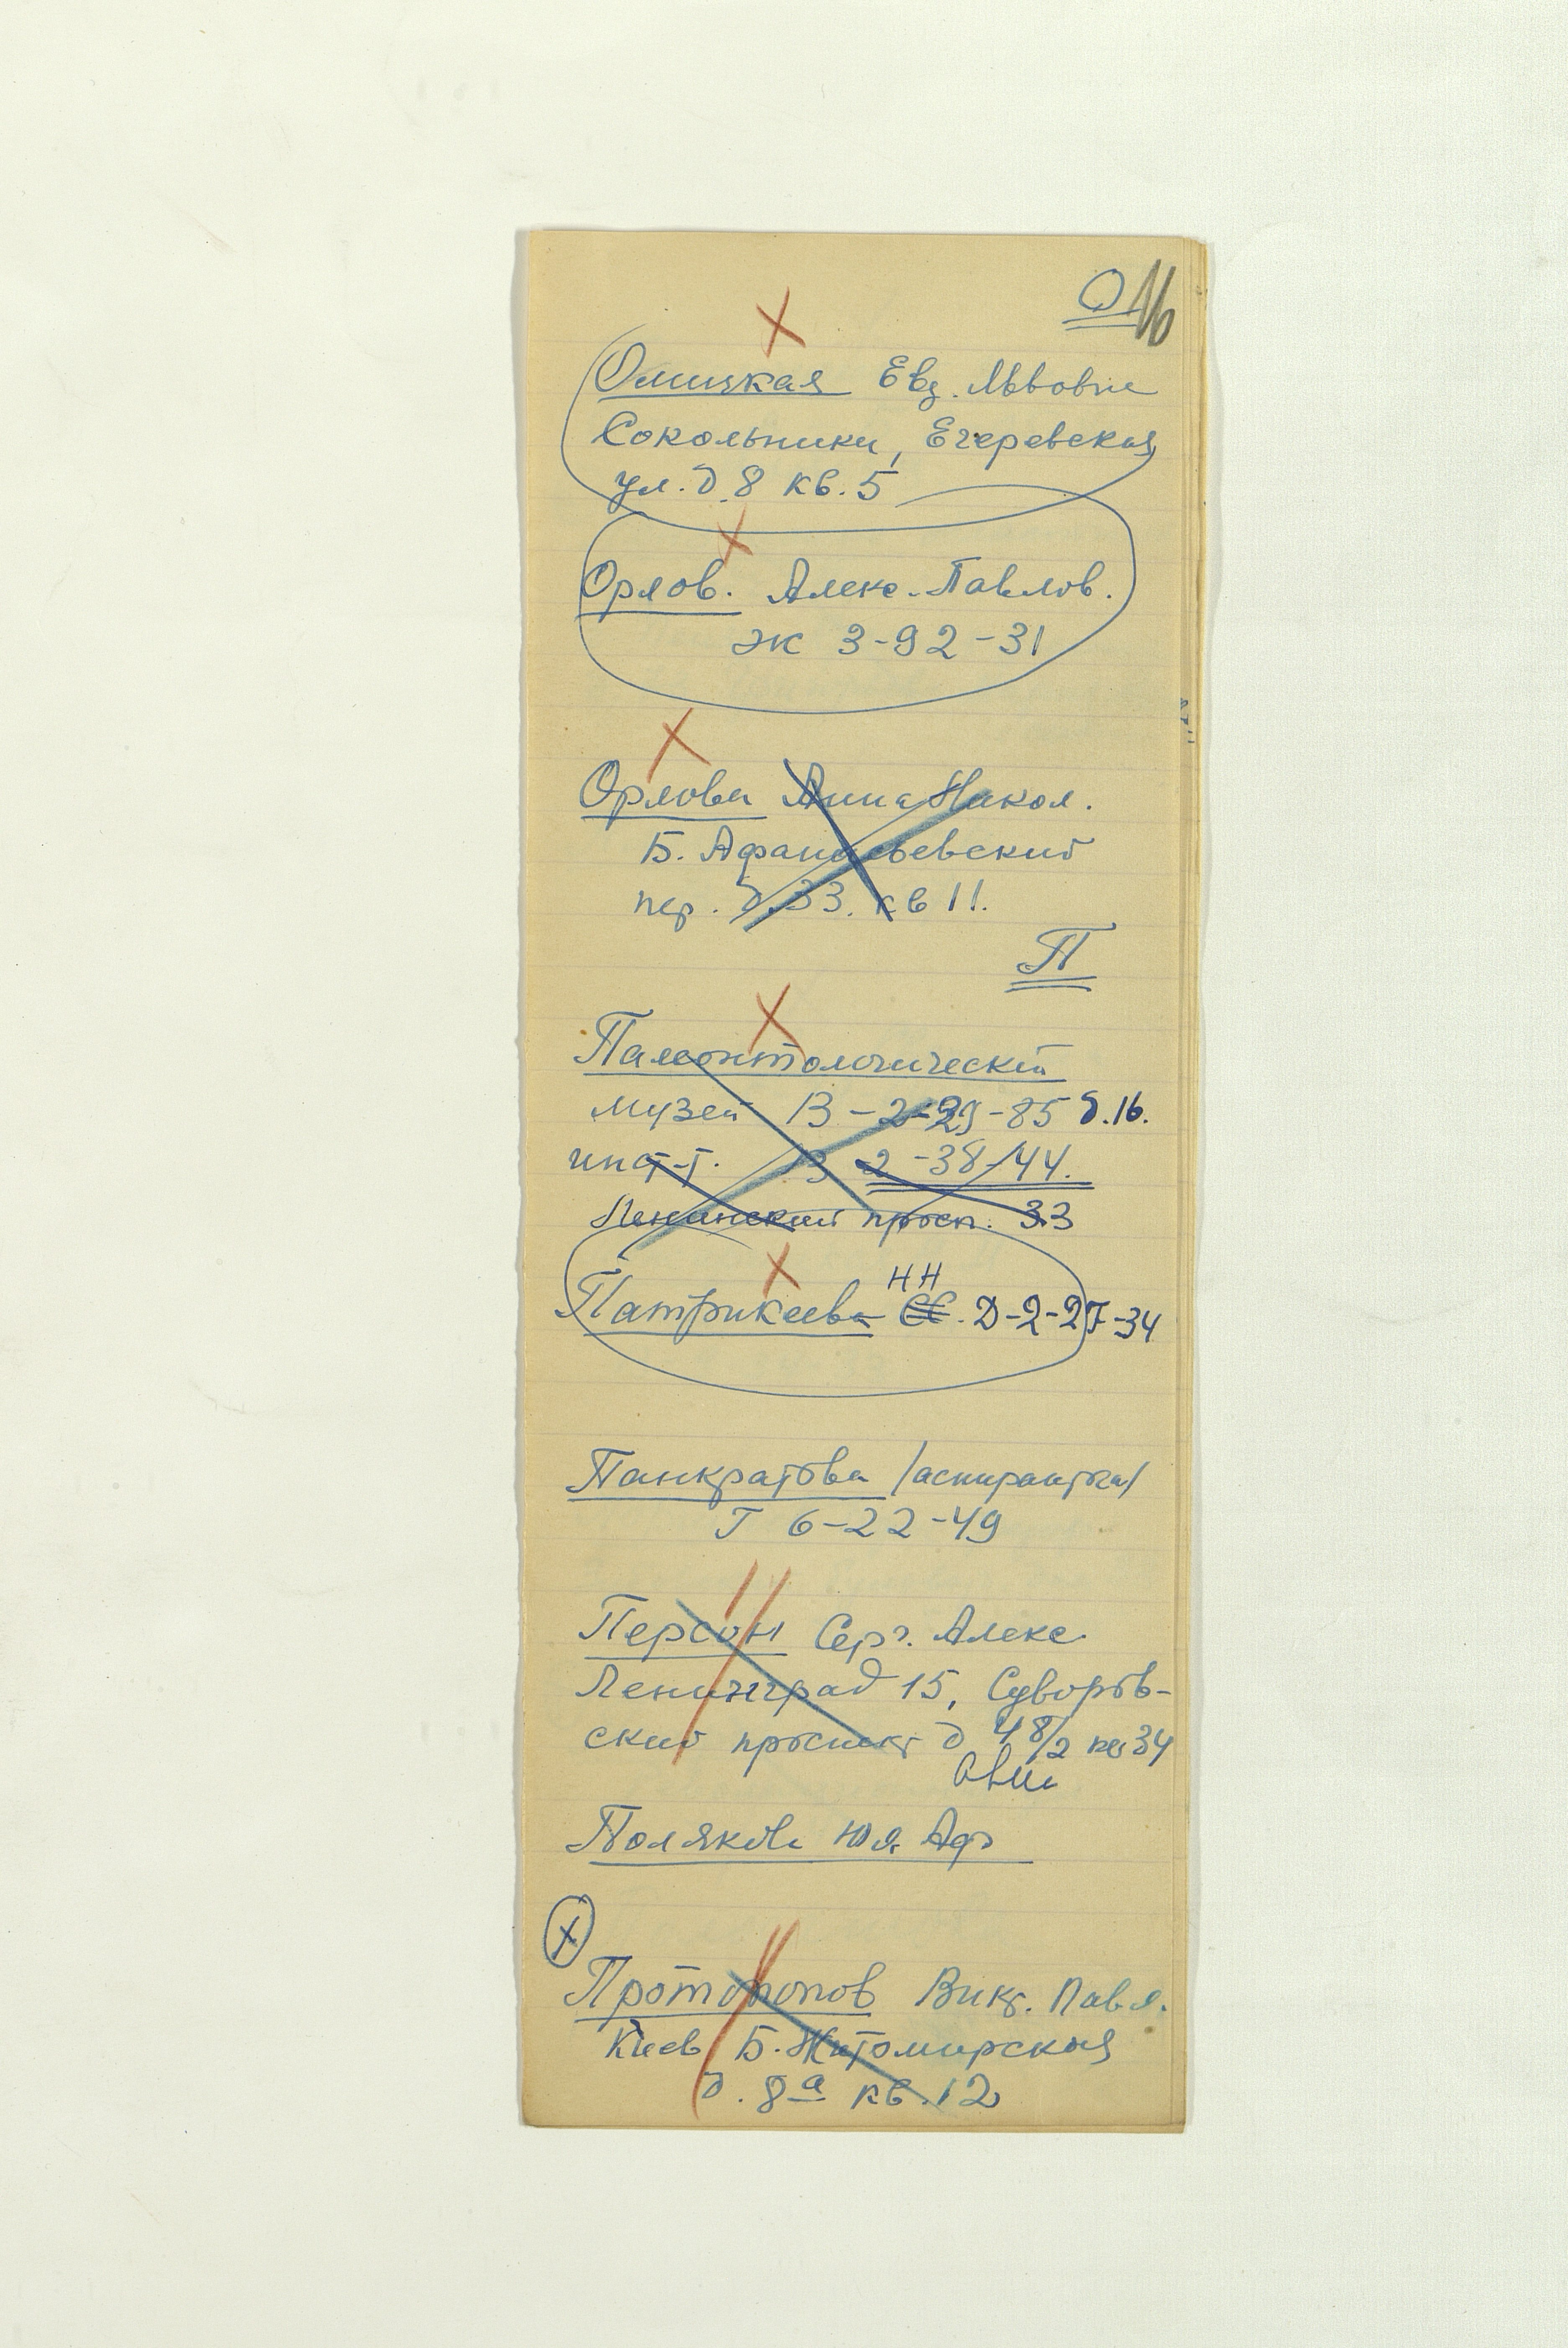 О 16
Олицкая Евг. Львовна
Сокольники, Егеревская
ул. д. 8 кв. 5
Орлов. Алекс. Павлов.
Ж 3-92-31
Орлова Анна Никол.
Б. Афанасьевский
пер. д. 33. кв 11.
П
Палеонтологический
музей В-2-29-85 д.16.
инст-т. В 2-38-44.
Ленинский просп. 33
НН
Патрикеева ЕЕ. Д-2-27-34
Панкратова /аспирантка/
Г 6-22-49
Персон Серг. Алекс
Ленинград 15, Суворов-
ский проспект д 48/2 кв 34
Полякова Юл. Аф
Х
Протопопов Викт. Павл.
Киев Б. Житомирская
д. 8а кв. 12